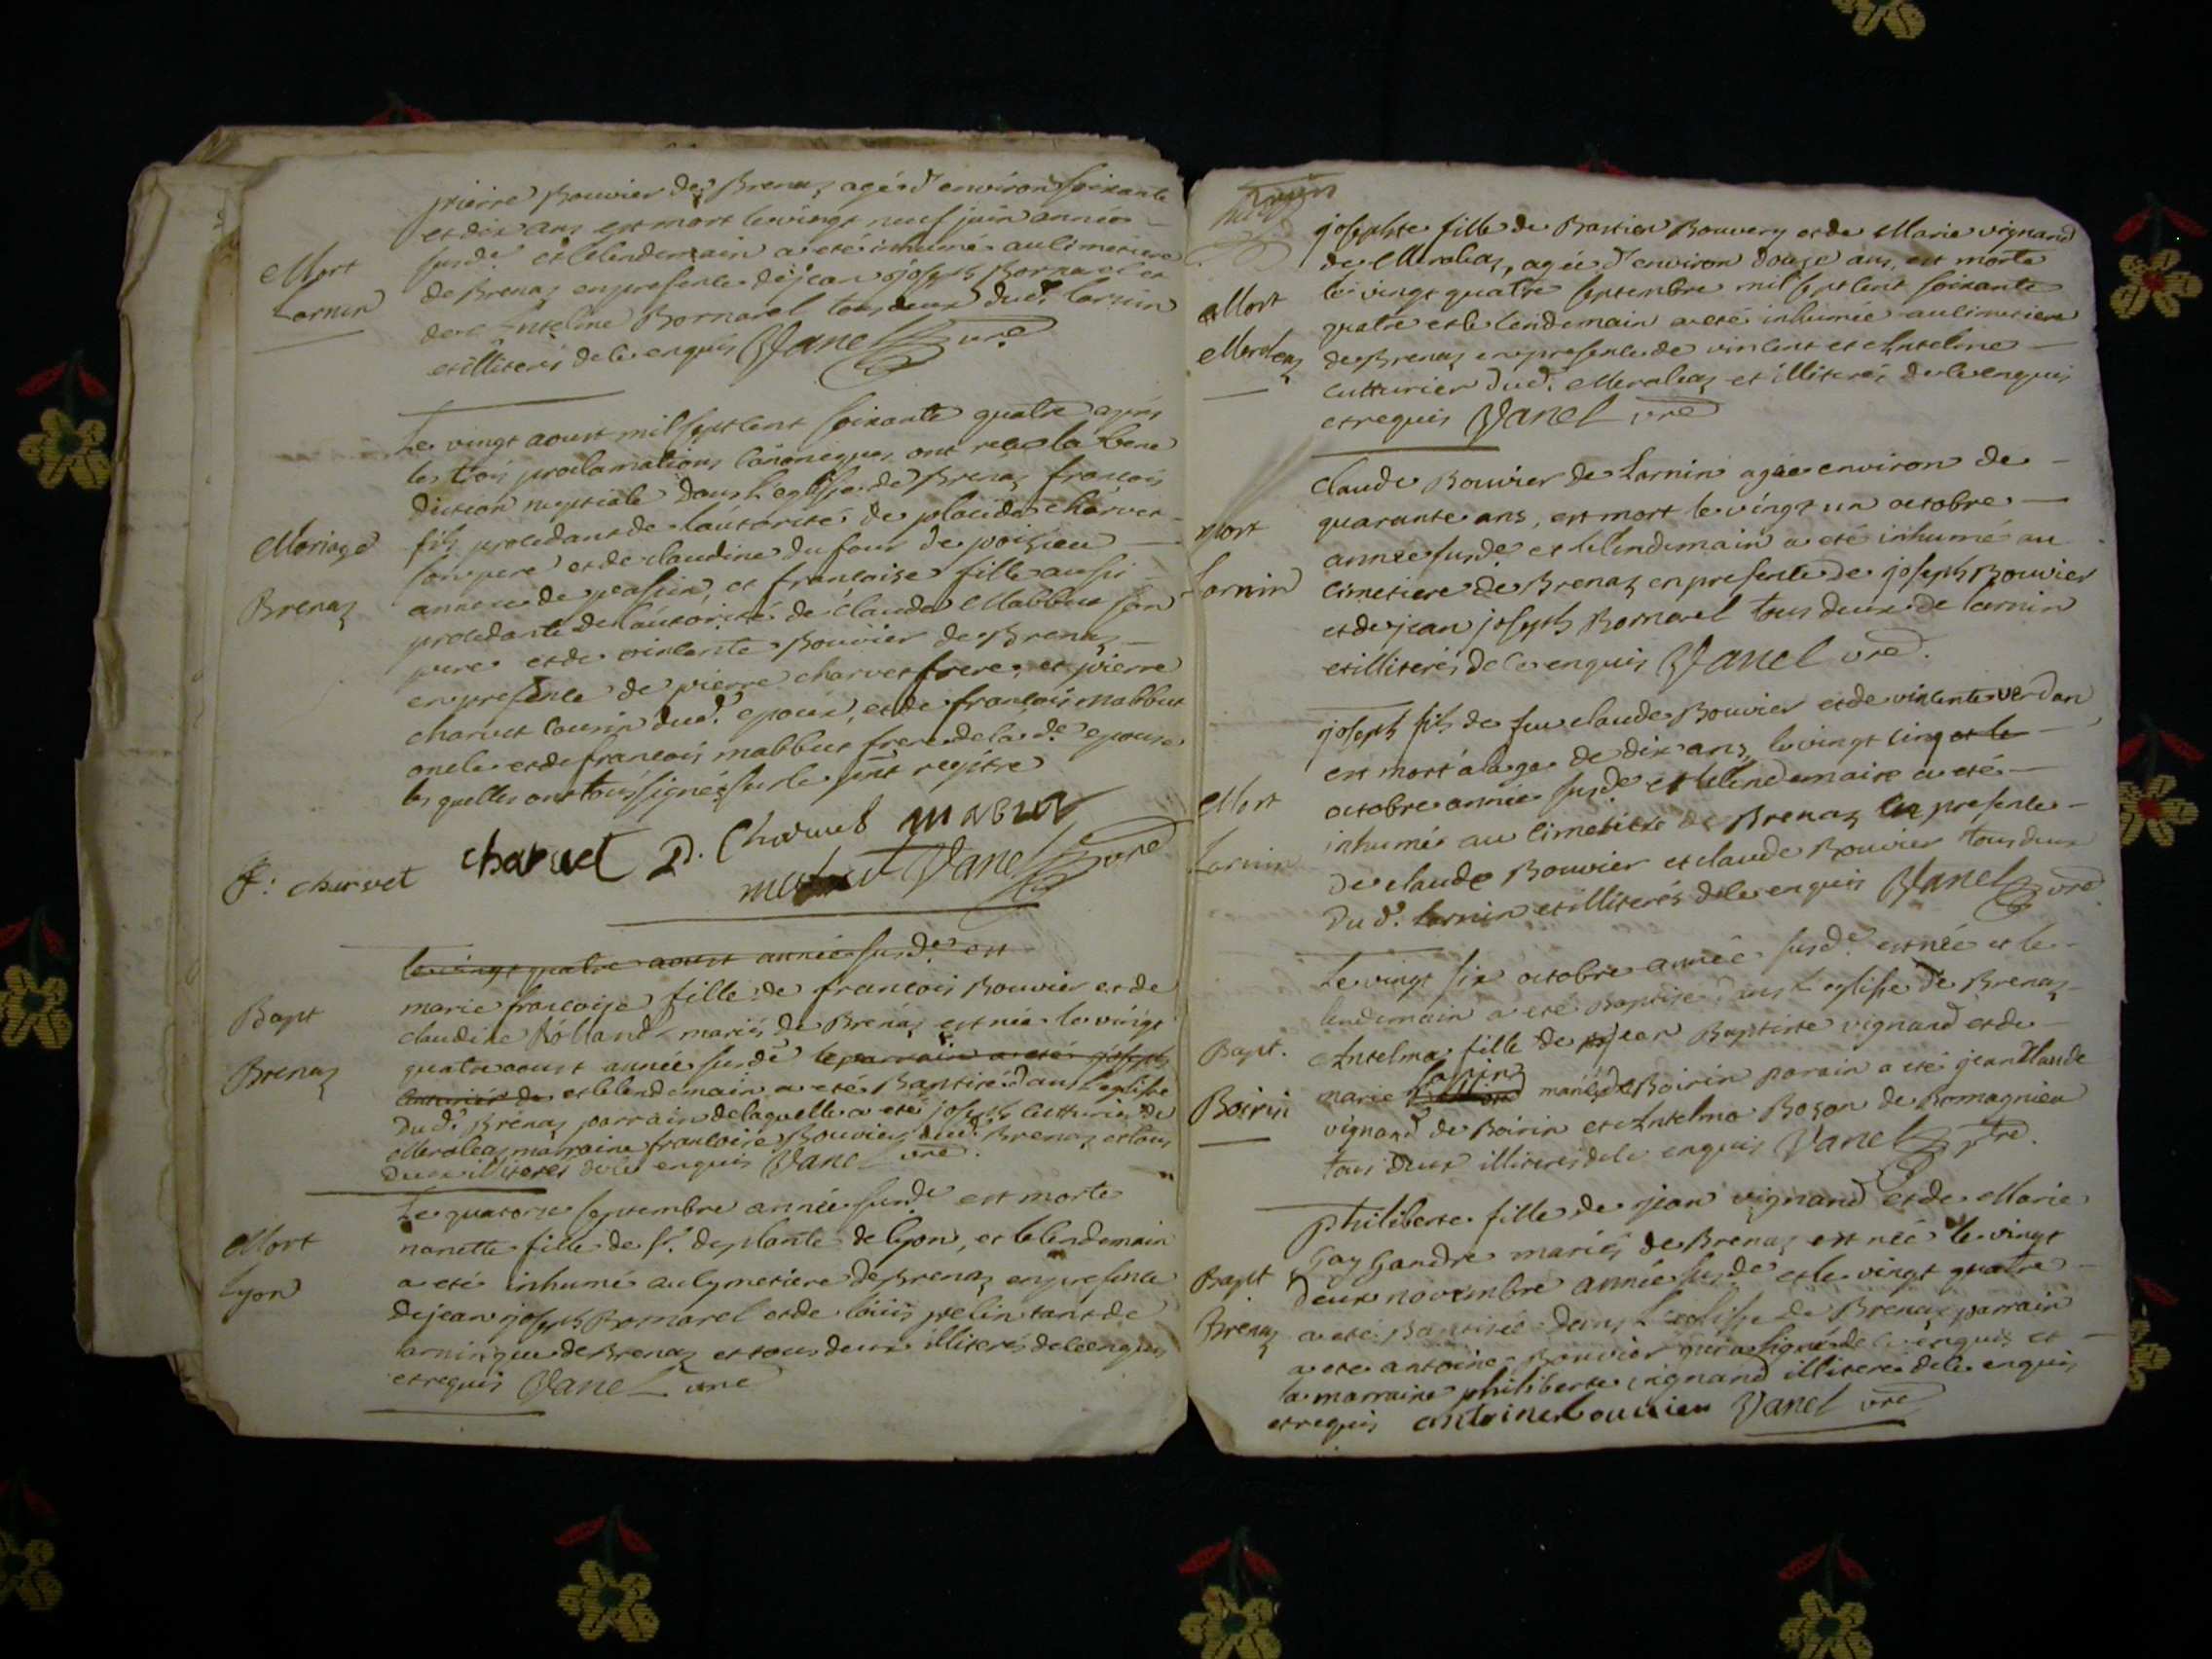 pierre Bouvier de Brenaz agé d'environ soixante
et dix ans est mort le vingt neuf juin année
susde et le lendemain a eté inhumé au cimetiere
Mort
de Brenaz en presence de jean joseph Bornarel et
Lornin
de Anteline Bornarel tous deux dud. lornin
et illiterés de ce enquis Vanel vre
Le vingt aoust mil sept cent soixante quatre après
les trois proclamations canoniques ont reçu la bene
diction nuptiale dans l'eglise de Brenaz francois
Mariage
fils procedant de l'autorité de placide charvet
son pere et de claudine du four de poisieu
Brenaz
annexe de et francoise fille aussi
procedante de l'autorité de claude Mabbut son
pere et de vincente Bouvier de Brenaz
en presence de pierre charvet frere, et pierre
charvet cousin dud. epoux, et de francois mabbut
oncle et de francois mabbut frere de la de epouse
les quelles ont tous signés sur le pnt registre
F: charvet charvet P. Charvet mabut
Vanel vre
le vingt quatre aoust année susde est
Bapt
marie francoise fille de francois Bouvier et de
claudine Rolland mariés de Brenaz est née le vingt
Brenaz
quatre aoust année susde le parrain a eté joseph
cutturier de et le lendemain a eté Baptisé dans l'eglise
du d. Brenaz parrain de laquelle a eté joseph cutturier de
Meraleaz marraine francoise Bouvier dud. Brenaz et tous
deux illiterés de ce enquis Vanel vre.
Le quatorze septembre année susde est morte
Mort
nanette fille de sr. deplante de lyon, et le lendemain
Lyon
a eté inhumé au cymetiere de Brenaz en presence
de jean joseph Bornarel et de louis pelin tant de
lornin que de Brenaz et tous deux illiterés de ce enquis
et requis Vanel vre
josephte fille de Bastien Bouvery et de Marie vignand
de Meraleaz, agée d'environ douze ans, est morte
Mort
le vingt quatre septembre mil sept cent soixante
quatre et le lendemain a eté inhumée au cimetiere
Meraleaz
de Brenaz en presence de vincent et Anteline
cutturier dud. Meraleaz et illiterés de ce enquis
et requis Vanel vre
claude Bouvier de Lornin agée environ de
Mort
quarante ans, est mort le vingt un octobre
année susde et le lendemain a eté inhumé au
Lornin
cimetiere de Brenaz en presente de joseph Bouvier
et de jean joseph Bornarel tous deux de lornin
et illiterés de ce enquis Vanel vre.
joseph fils de feu claude Bouvier et de vincente verdan
est mort à l'age de dix ans, le vingt cinq et le
Mort
octobre année susde et le lendemain a eté
inhumé au cimetiere de Brenaz en presence
Lornin
de claude Bouvier et claude Bouvier tous deux
du d. Lornin et illiterés de ce enquis Vanel vre
Le vingt six octobre année susde est née et le
lendemain a eté Baptisé dans l'eglise de Brenaz
Bapt.
Antelma fille de jean Baptiste vignand et de
marie mariés de Boirin parain a eté jean Claude
Boirin
vignand de Boirin et Antelma Boson de Romagnieu
tous deux illiterés de ce enquis Vanel ptre.
philiberte fille de jean vignand et de Marie
Gay Gandre mariés de Brenaz est née le vingt
Bapt
deux novembre année susde et le vingt quatre
Brenaz
a eté Baptisée dans l'eglise de Brenaz parrain
a eté antoine Bouvier qui a signé de ce enquis et
la marraine philiberte vignand illiteré de ce enquis
et requis antoine bouvier Vanel vre